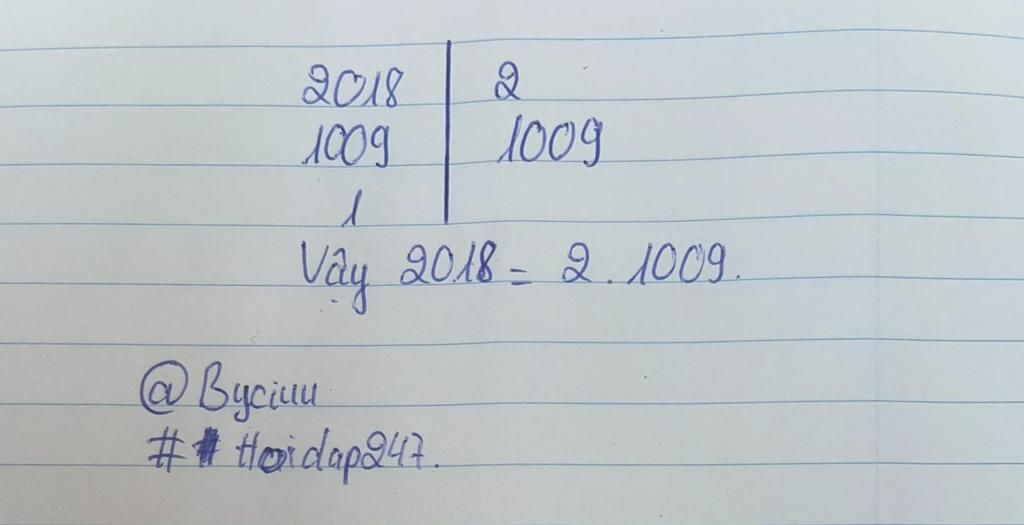 2018 | 2
1009 | 1009
1
Vậy 2018 = 2 . 1009.
@Byciuu
## Hoidap247.